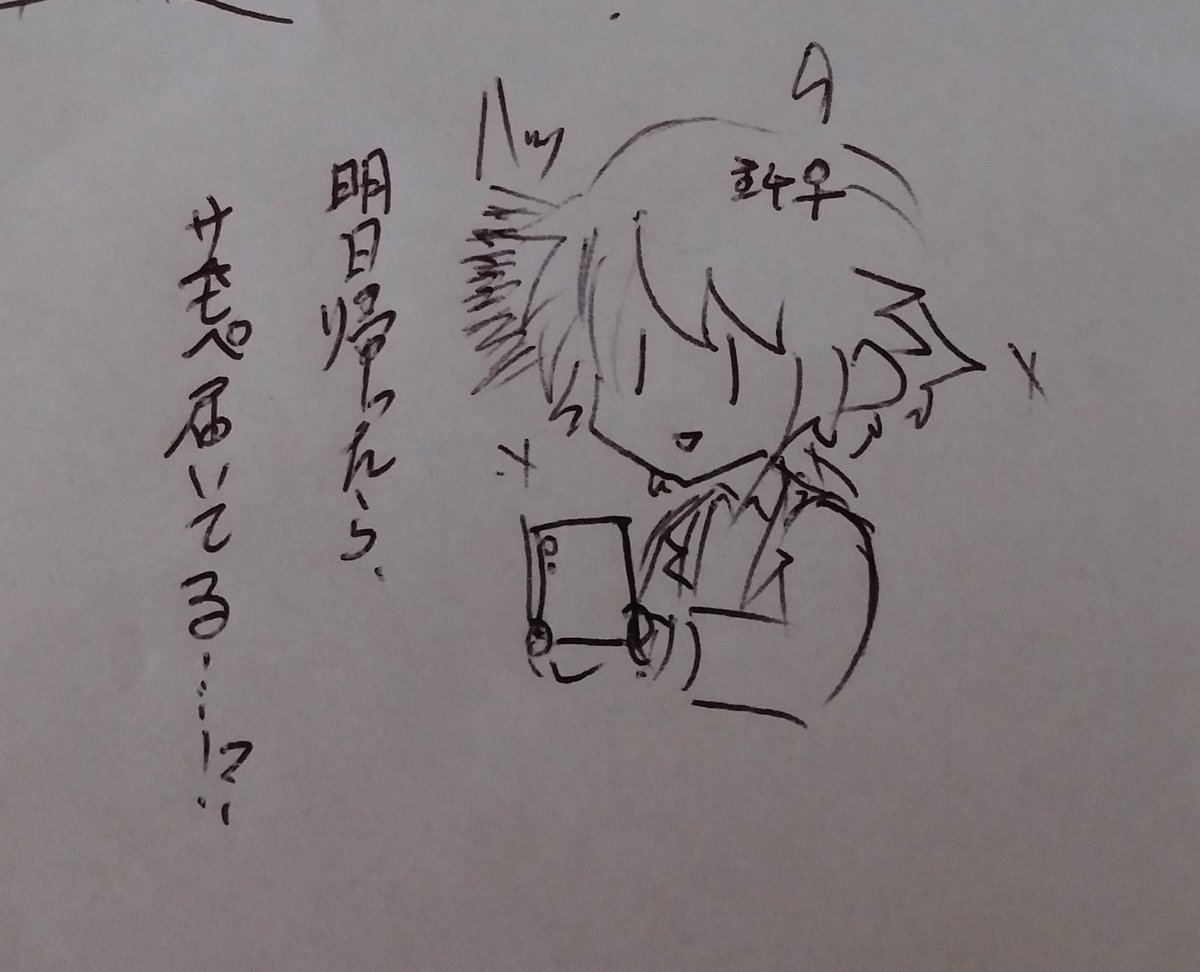 ハッ
明日帰ったら、
サモペ届いてる……!?